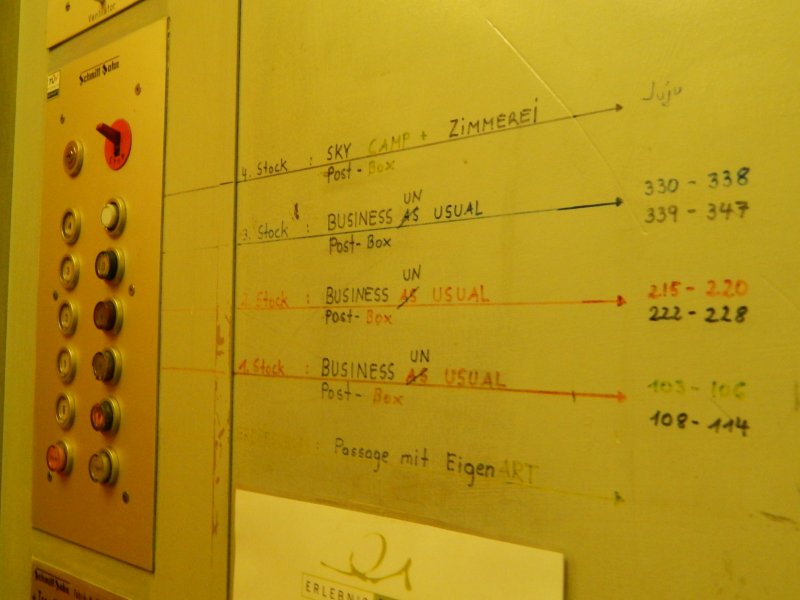 Ventilator
Schmitt Sohn
Juju
4. Stock : SKY CAMP + ZIMMEREI
Post-Box
330 - 338
UN
3. Stock : BUSINESS AS USUAL
339 - 347
Post-Box
UN
2. Stock : BUSINESS AS USUAL
215 - 220
Post-Box
222 - 228
UN
1. Stock : BUSINESS AS USUAL
103 - 106
Post-Box
108 - 114
: Passage mit EigenART
ERLEBNIS
Schmitt Sohn